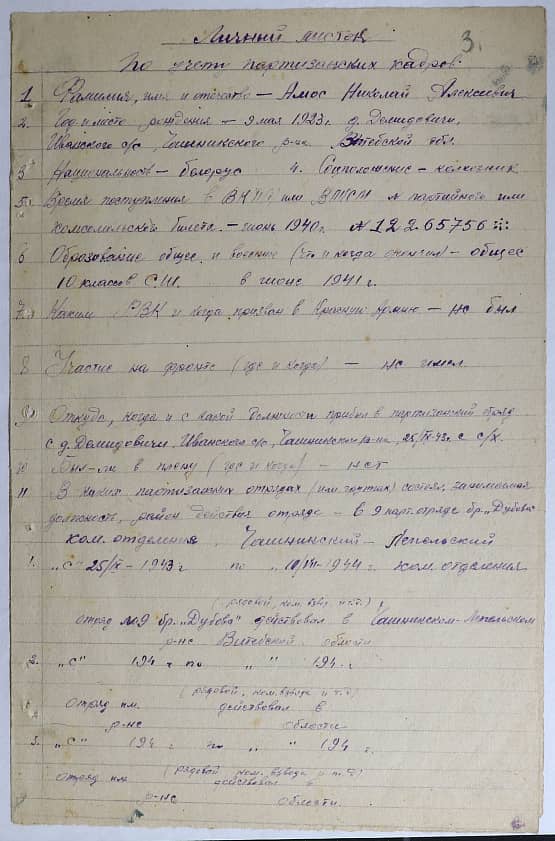 3.
Личный листок
по учету партизанских кадров.
1. Фамилия, имя и отчество – Амос Николай Алексеевич
2. Год и место рождения – 9 мая 1923 г. д. Демидовичи,
Иванского с/с Чашникского р-на Витебской обл.
3. Национальность – белорус 4. Соцположение – колхозник
5. Время поступления в ВКП(б) или ВЛКСМ № партийного или
комсомольского билета. – июнь 1940 г. № 12265756
6 Образование общее и военное (что и когда окончил) – общее
10 классов С.Ш. в июне 1941 г.
7. Каким РВК и когда призван в Красную Армию – не был
8 Участие на фронте (где и когда) – не имел.
9. Откуда, когда и с какой должности прибыл в партизанский отряд
с д. Демидовичи, Иванского с/с, Чашникского р-на, 25/IX-43 г. с с/х.
10 Был-ли в плену (где и когда) – нет
11 В каких партизанских отрядах (или группах) состоял, занимаемая
должность, район действия отряда – в 9 парт. отряде бр. „Дубова"
ком. отделения Чашникский – Лепельский
1. „с" 25/IX – 1943 г по – 1944 г. ком. отделения
(рядовой, ком. взвод. и т.г.)
отряд №9 бр. „Дубова" действовал в Чашникском-Лепельском
р-не Витебской области
2. „с" 194 г по „ " 194 г.
(рядовой, ком. взвода и т.г)
отряд им. действовал в
р-не области
3. „с" 194 г по „ " 194 г.
(рядовой, ком. взвода и т.г)
отряд им. действовал в
р-не области.